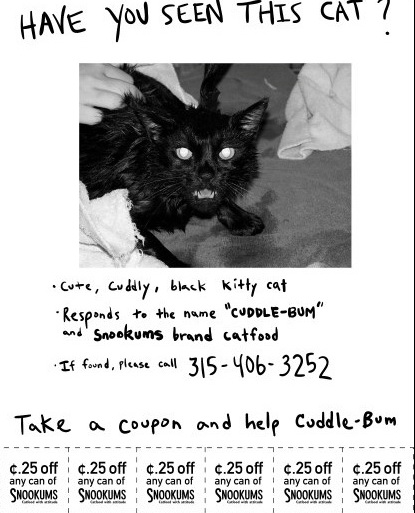 HAVE YOU SEEN THIS CAT?
· Cute, Cuddly, black kitty cat
· Responds to the name "CUDDLE-BUM"
and Snookums brand catfood
· If found, please call 315-406-3252
Take a coupon and help Cuddle-Bum
¢.25 off ¢.25 off ¢.25 off ¢.25 off ¢.25 off ¢.25 off
any can of any can of any can of any can of any can of any can of
SNOOKUMS SNOOKUMS SNOOKUMS SNOOKUMS SNOOKUMS SNOOKUMS
Catfood with attitude Catfood with attitude Catfood with attitude Catfood with attitude Catfood with attitude Catfood with attitude